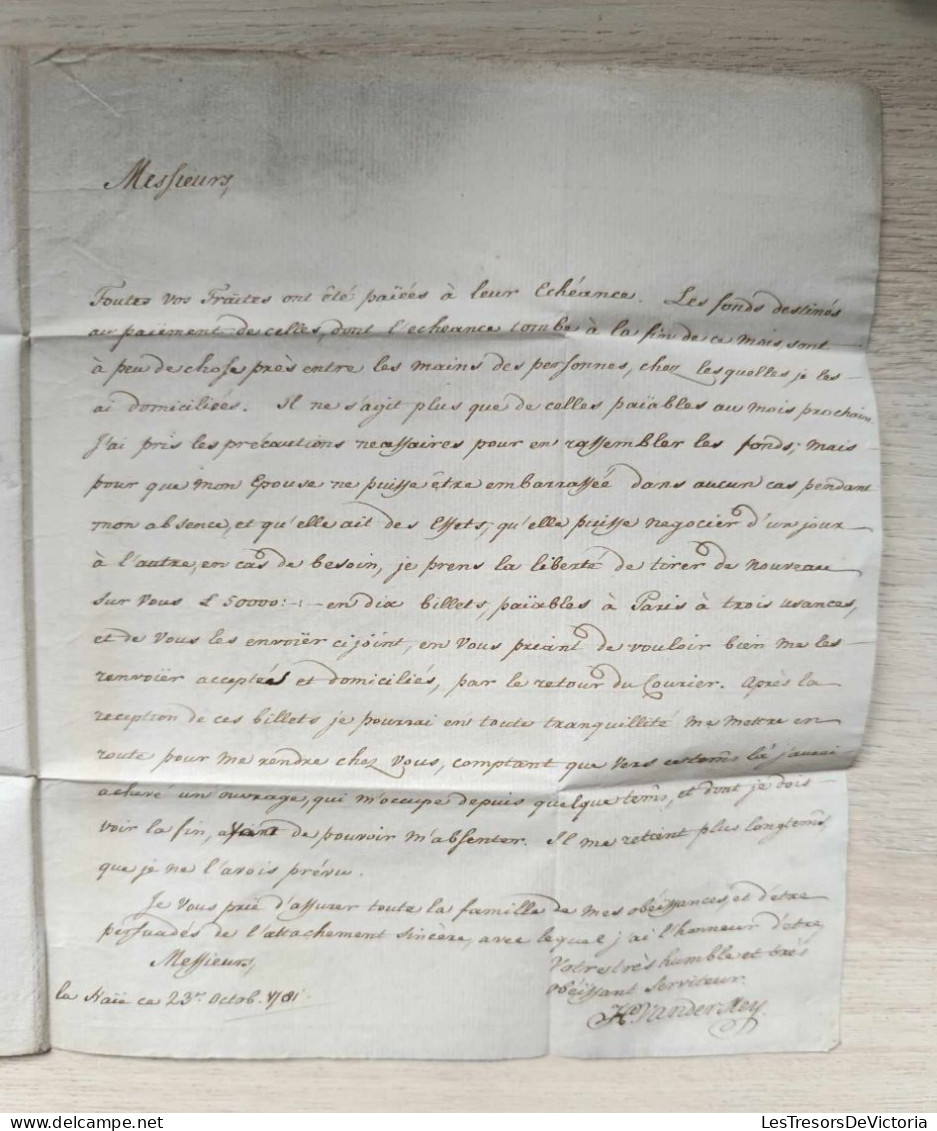 Messieurs,
Toutes vos Traites ont été païées à leur Echéance. Les fonds destinés
au païement de celles, dont l'echeance tombe à la fin de ce mois, sont
à peu de chose près entre les mains des personnes, chez lesquelles je les
ai domiciliées. Il ne s'agit plus que de celles païables au mois prochain
J'ai pris les précautions necessaires pour en rassembler les fonds; mais
pour que mon Epouse ne puisse être embarrassée dans aucun cas pendant
mon absence, et qu'elle ait des Effets, qu'elle puisse negocier d'un jour
à l'autre, en cas de besoin, je prens la liberté de tirer de nouveau
sur vous £ 50000:-:- en dix billets, païables à Paris à trois usances,
et de vous les envoïer cijoint, en vous priant de vouloir bien me les
renvoïer acceptés et domiciliés, par le retour du Courier. Après la
reception de ces billets je pourrai en toute tranquillité me mettre en
route pour me rendre chez vous, comptant que vers ce tems là j'aurai
achevé un ouvrage, qui m'occupe depuis quelque tems, et dont je dois
voir la fin, avant de pouvoir m'absenter. Il me retient plus longtems
que je ne l'avois prévu.
Je vous prie d'assurer toute la famille de mes obéissances, et d'être
persuadés de l'attachement sincère, avec lequel j'ai l'honneur d'être,
Messieurs,
Votre très humble et très
obéissant Serviteur
la Haïe ce 23. Octob. 1781.
Vander Hey.
LesTresorsDeVictoria